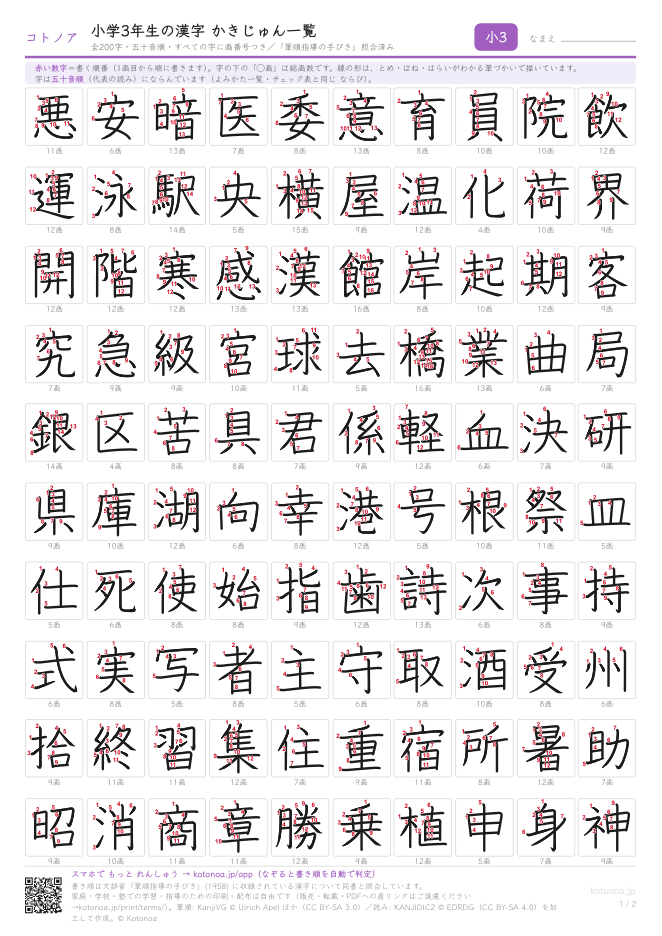 コトノア
小学3年生の漢字 かきじゅん一覧
全200字・五十音順・すべての字に画番号つき／「筆順指導の手びき」照合済み
小3
なまえ
赤い数字＝書く順番（1画目から順に書きます）。字の下の「◯画」は総画数です。線の形は、とめ・はね・はらいがわかる筆づかいで描いています。
字は五十音順（代表の読み）にならんでいます（よみかた一覧・チェック表と同じ ならび）。
悪 安 暗 医 委 意 育 員 院 飲
11画 6画 13画 7画 8画 13画 8画 10画 10画 12画
運 泳 駅 央 横 屋 温 化 荷 界
12画 8画 14画 5画 15画 9画 12画 4画 10画 9画
開 階 寒 感 漢 館 岸 起 期 客
12画 12画 12画 13画 13画 16画 8画 10画 12画 9画
究 急 級 宮 球 去 橋 業 曲 局
7画 9画 9画 10画 11画 5画 16画 13画 6画 7画
銀 区 苦 具 君 係 軽 血 決 研
14画 4画 8画 8画 7画 9画 12画 6画 7画 9画
県 庫 湖 向 幸 港 号 根 祭 皿
9画 10画 12画 6画 8画 12画 5画 10画 11画 5画
仕 死 使 始 指 歯 詩 次 事 持
5画 6画 8画 8画 9画 12画 13画 6画 8画 9画
式 実 写 者 主 守 取 酒 受 州
6画 8画 5画 8画 5画 6画 8画 10画 8画 6画
拾 終 習 集 住 重 宿 所 暑 助
9画 11画 11画 12画 7画 9画 11画 8画 12画 7画
昭 消 商 章 勝 乗 植 申 身 神
9画 10画 11画 11画 12画 9画 12画 5画 7画 9画
スマホで もっと れんしゅう → kotonoa.jp/app（なぞると書き順を自動で判定）
書き順は文部省「筆順指導の手びき」(1958) に収録されている漢字について同書と照合しています。
家庭・学校・塾での学習・指導のための印刷・配布は自由です（販売・転載・PDFへの直リンクはご遠慮ください
→kotonoa.jp/print/terms/）。筆順: KanjiVG © Ulrich Apel ほか（CC BY-SA 3.0）／読み: KANJIDIC2 © EDRDG（CC BY-SA 4.0）を加
工して作成。© Kotonoa
kotonoa.jp
1 / 2